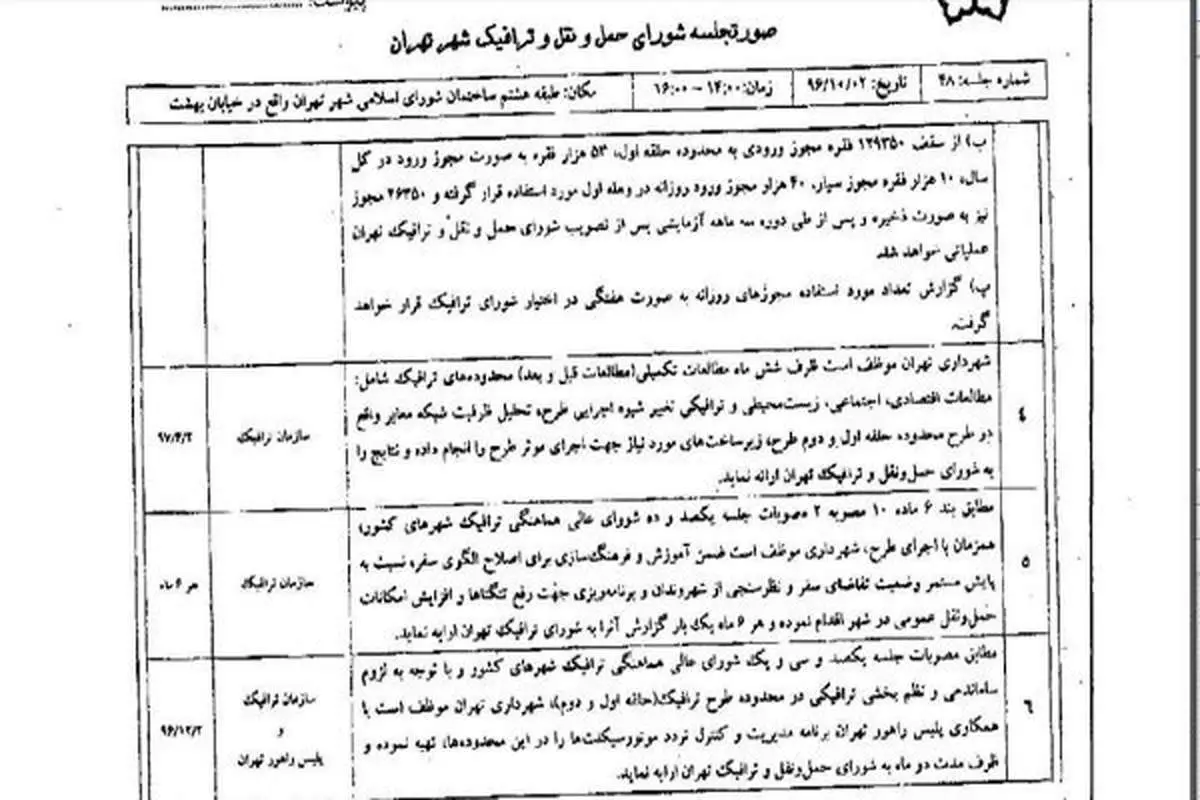 پیوست:
صورتجلسه شورای حمل و نقل و ترافیک شهر تهران
شماره جلسه: ۴۸ تاریخ: ۹۶/۱۰/۰۲ زمان: ۱۴:۰۰ – ۱۶:۰۰ مکان: طبقه هشتم ساختمان شورای اسلامی شهر تهران واقع در خیابان بهشت
ب) از سقف ۱۲۹۳۵۰ فقره مجوز ورودی به محدوده حلقه اول، ۵۳ هزار فقره به صورت مجوز ورود در کل
سال، ۱۰ هزار فقره مجوز سیار، ۴۰ هزار مجوز ورود روزانه در وهله اول مورد استفاده قرار گرفته و ۲۶۳۵۰ مجوز
نیز به صورت ذخیره و پس از طی دوره سه ماهه آزمایشی پس از تصویب شورای حمل و نقل و ترافیک تهران
عملیاتی خواهد شد.
پ) گزارش تعداد مورد استفاده مجوزهای روزانه به صورت هفتگی در اختیار شورای ترافیک قرار خواهد
گرفت.
شهرداری تهران موظف است ظرف شش ماه مطالعات تکمیلی(مطالعات قبل و بعد) محدوده‌های ترافیک شامل:
مطالعات اقتصادی، اجتماعی، زیست‌محیطی و ترافیکی تغییر شیوه اجرایی طرح، تحلیل ظرفیت شبکه معابر واقع
در طرح محدوده حلقه اول و دوم طرح، زیرساخت‌های مورد نیاز جهت اجرای موثر طرح را انجام داده و نتایج را
به شورای حمل‌ونقل و ترافیک تهران ارائه نماید.
۴
سازمان ترافیک
۹۷/۴/۲
مطابق بند ۶ ماده ۱۰ مصوبه ۲ مصوبات جلسه یکصد و ده شورای عالی هماهنگی ترافیک شهرهای کشور،
همزمان با اجرای طرح، شهرداری موظف است ضمن آموزش و فرهنگ‌سازی برای اصلاح الگوی سفر، نسبت به
پایش مستمر وضعیت تقاضای سفر و نظرسنجی از شهروندان و برنامه‌ریزی جهت رفع تنگناها و افزایش امکانات
حمل‌ونقل عمومی در شهر اقدام نموده و هر ۶ ماه یک بار گزارش آنرا به شورای ترافیک تهران ارایه نماید.
۵
سازمان ترافیک
هر ۶ ماه
مطابق مصوبات جلسه یکصد و سی و یک شورای عالی هماهنگی ترافیک شهرهای کشور و با توجه به لزوم
ساماندهی و نظم بخشی ترافیکی در محدوده طرح ترافیک(حلقه اول و دوم)، شهرداری تهران موظف است با
همکاری پلیس راهور تهران برنامه مدیریت و کنترل تردد موتورسیکلت‌ها را در این محدوده‌ها، تهیه نموده و
ظرف مدت دو ماه به شورای حمل‌ونقل و ترافیک تهران ارایه نماید.
۶
سازمان ترافیک
و
پلیس راهور تهران
۹۶/۱۲/۲